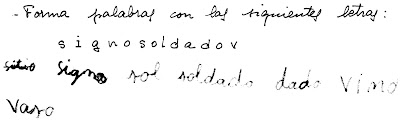 - Forma palabras con las siguientes letras:
s i g n o s o l d a d o v
sitio signo sol soldado dado vino
vaso